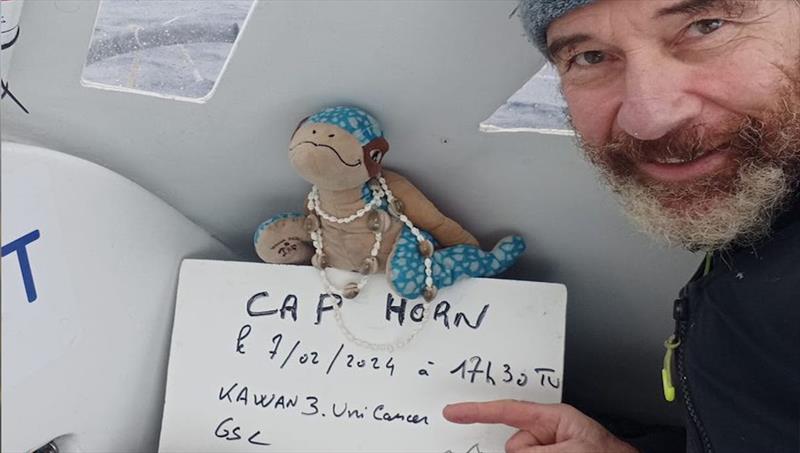 T
CAP HORN
le 7/02/2024 à 17h30 TU
KAWAN 3. UniCancer
GSC